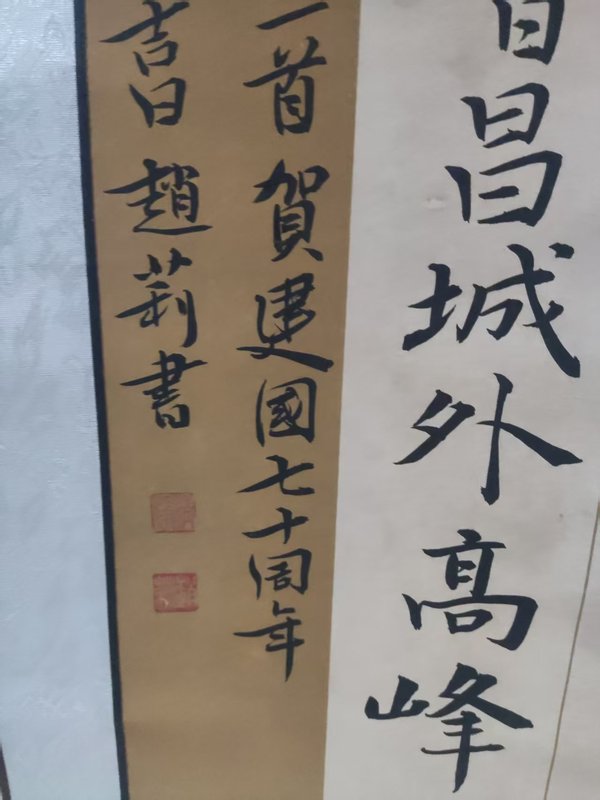 昌城外高峰
一首賀建國七十周年
吉日趙莉書